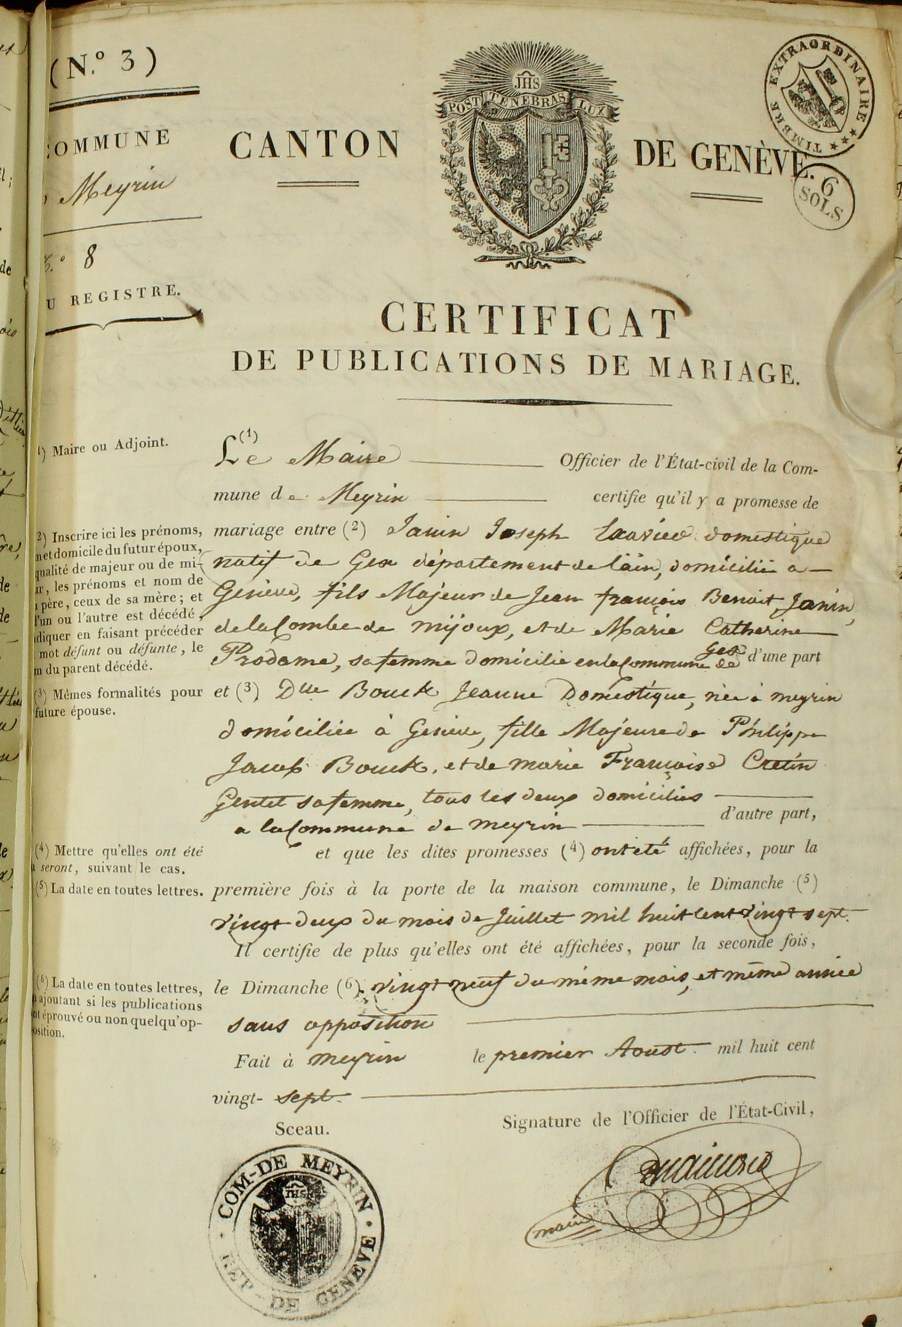 (N.º 3)
COMMUNE
Meyrin
N.º 8
DU REGISTRE.
CANTON DE GENÈVE.
JHS
POST TENEBRAS LUX
TIMBRE EXTRAORDINAIRE
6
SOLS
CERTIFICAT
DE PUBLICATIONS DE MARIAGE.
(1) Maire ou Adjoint.
Le (1) Maire Officier de l'État-civil de la Com-
mune de Meyrin certifie qu'il y a promesse de
mariage entre (2) Janin Joseph Xavier domestique
natif de Gex département de l'ain, domicilié a
Genève, fils Majeur de Jean françois Benoit Janin,
de la Combe de mijoux, et de Marie Catherine
Prodame, sa femme domicilié en la Commune de Gex d'une part
(2) Inscrire ici les prénoms,
nom et domicile du futur époux,
qualité de majeur ou de mi-
neur, les prénoms et nom de
son père, ceux de sa mère; et
si l'un ou l'autre est décédé,
l'indiquer en faisant précéder
le mot défunt ou défunte, le
nom du parent décédé.
(3) Mêmes formalités pour
future épouse.
et (3) Dlle Bouck Jeanne Domestique, née à meyrin
domiciliée à Genève, fille Majeure de Philippe
Jacob Bouck, et de marie Françoise Cretin
Gentet sa femme, tous les deux domiciliés
a la Commune de meyrin d'autre part,
(4) Mettre qu'elles ont été
ou seront, suivant le cas.
(5) La date en toutes lettres.
et que les dites promesses (4) ont été affichées, pour la
première fois à la porte de la maison commune, le Dimanche (5)
vingt deux du mois de Juillet mil huit cent vingt sept.
Il certifie de plus qu'elles ont été affichées, pour la seconde fois,
le Dimanche (6) vingt neuf du même mois, et même année
sans opposition
(6) La date en toutes lettres,
en ajoutant si les publications
ont éprouvé ou non quelqu'op-
position.
Fait à meyrin le premier Aoust mil huit cent
vingt- sept.
Sceau.
Signature de l'Officier de l'État-Civil,
maire
COM-DE MEYRIN
JHS
REP-DE GENEVE